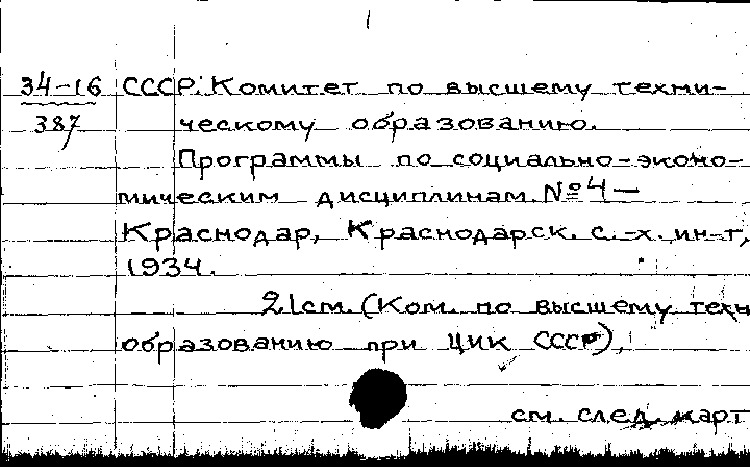 34-16 СССР. Комитет по высшему техни-
387 ческому образованию.
Программы по социально-эконо-
мическим дисциплинам. №4 —
Краснодар, Краснодарск. с.-х. ин-т,
1934.
21см. (Ком. по высшему техн
образованию при ЦИК СССР).
см. след. карт